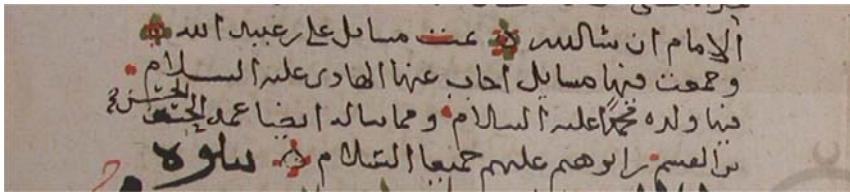 الامام ان شا الله تمت مسايل علي رعبيد الله
وجمعت فيها مسايل اجاب عنها الهادى عليه السلام
فيها ولده محمدا عليه السلام ومما ساله ايضا عمه
بن القسم بن ابرهيم عليهم جميعا السلام